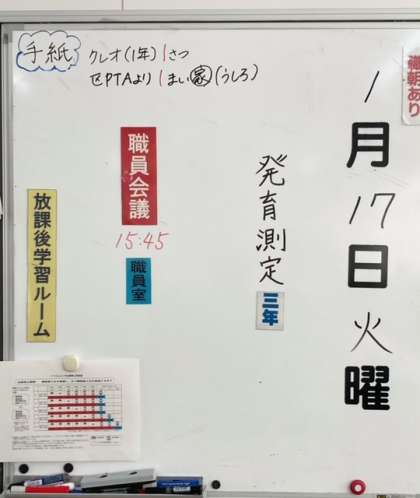 手紙
クレオ(1年) 1さつ
区PTAより 1まい 家 (うしろ)
儀朝あり
1月17日火曜
発育測定
三年
職員会議
15:45
職員室
放課後学習ルーム